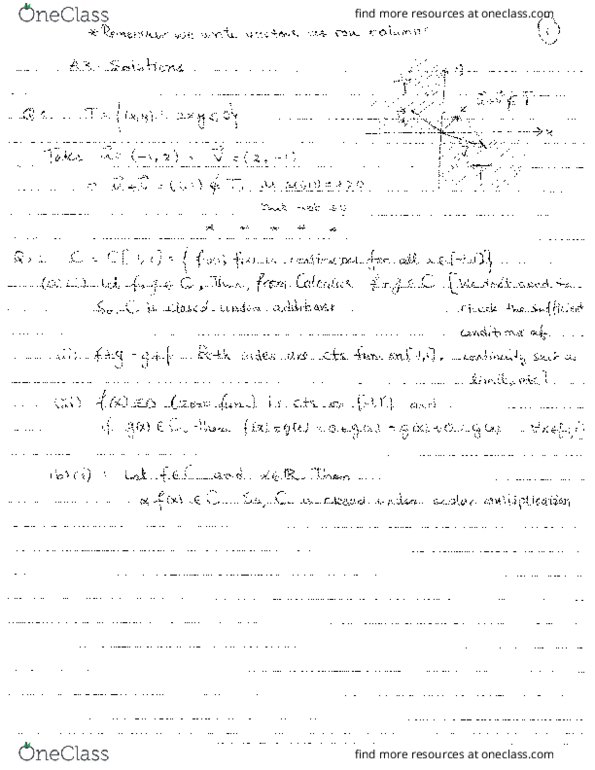 OneClass
find more resources at oneclass.com
* Remember we write vectors as row column
1
A3 Solutions
T
Q T = {(x,y) : xy ≤ 0}
x
Take u = (-1, 2) v = (2, -1)
u + v = (1, 1) ∉ T,
but not
* * * * *
Q C = C[-1, 1] = { f(x) | f(x) is continuous for all x ∈ [-1,1]}
Let f, g ∈ C, Then, from Calculus f + g ∈ C [We don't need to
So, C is closed under addition check the sufficient
conditions of
(ii) f+g = g+f Both sides are cts fun on [-1,1]. continuity such as
limit, etc]
(iii) f(x) ≡ 0 (zero fun.) is cts on [-1,1] and
if g(x) ∈ C, Then f(x)+g(x) = 0+g(x) = g(x)+0 = g(x) ∀x∈[-1,1]
(b)(i) : Let f ∈ C and α ∈ R. Then
α f(x) ∈ C So, C is closed under scalar multiplication
OneClass
find more resources at oneclass.com